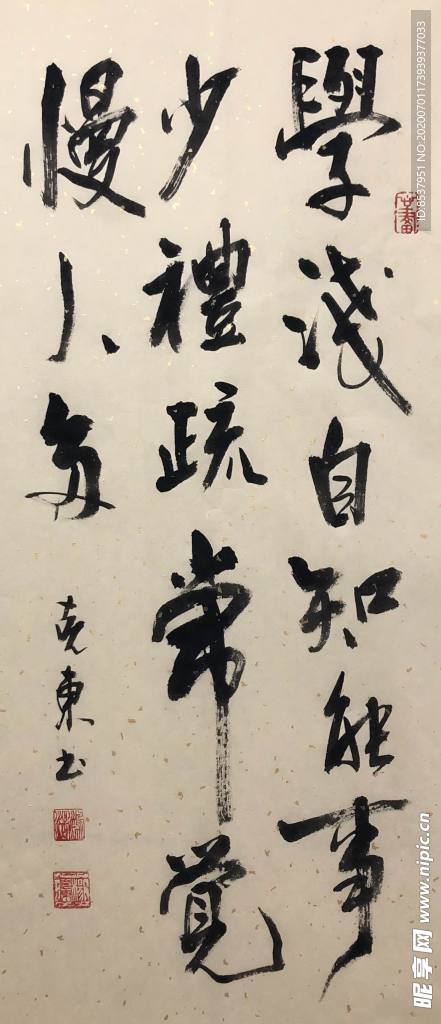 學淺自知能事
少禮疏常觉
慢人多
克東书
昵享网 www.nipic.cn
ID:8537951 NO:20200701173939377033